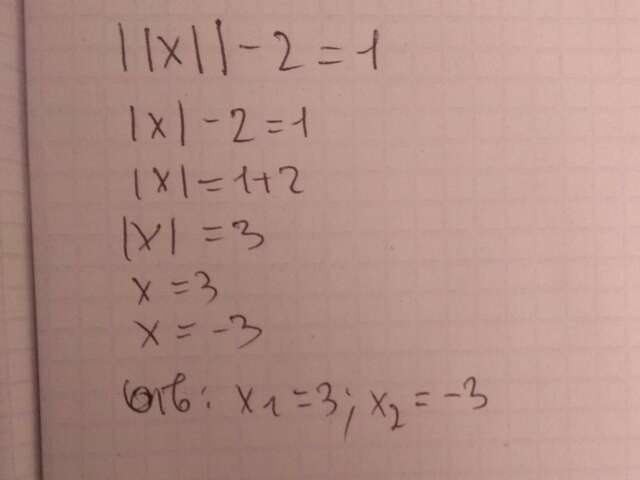 ||x||-2=1
|x|-2=1
|x|=1+2
|x|=3
x=3
x=-3
Отв: x₁=3; x₂=-3